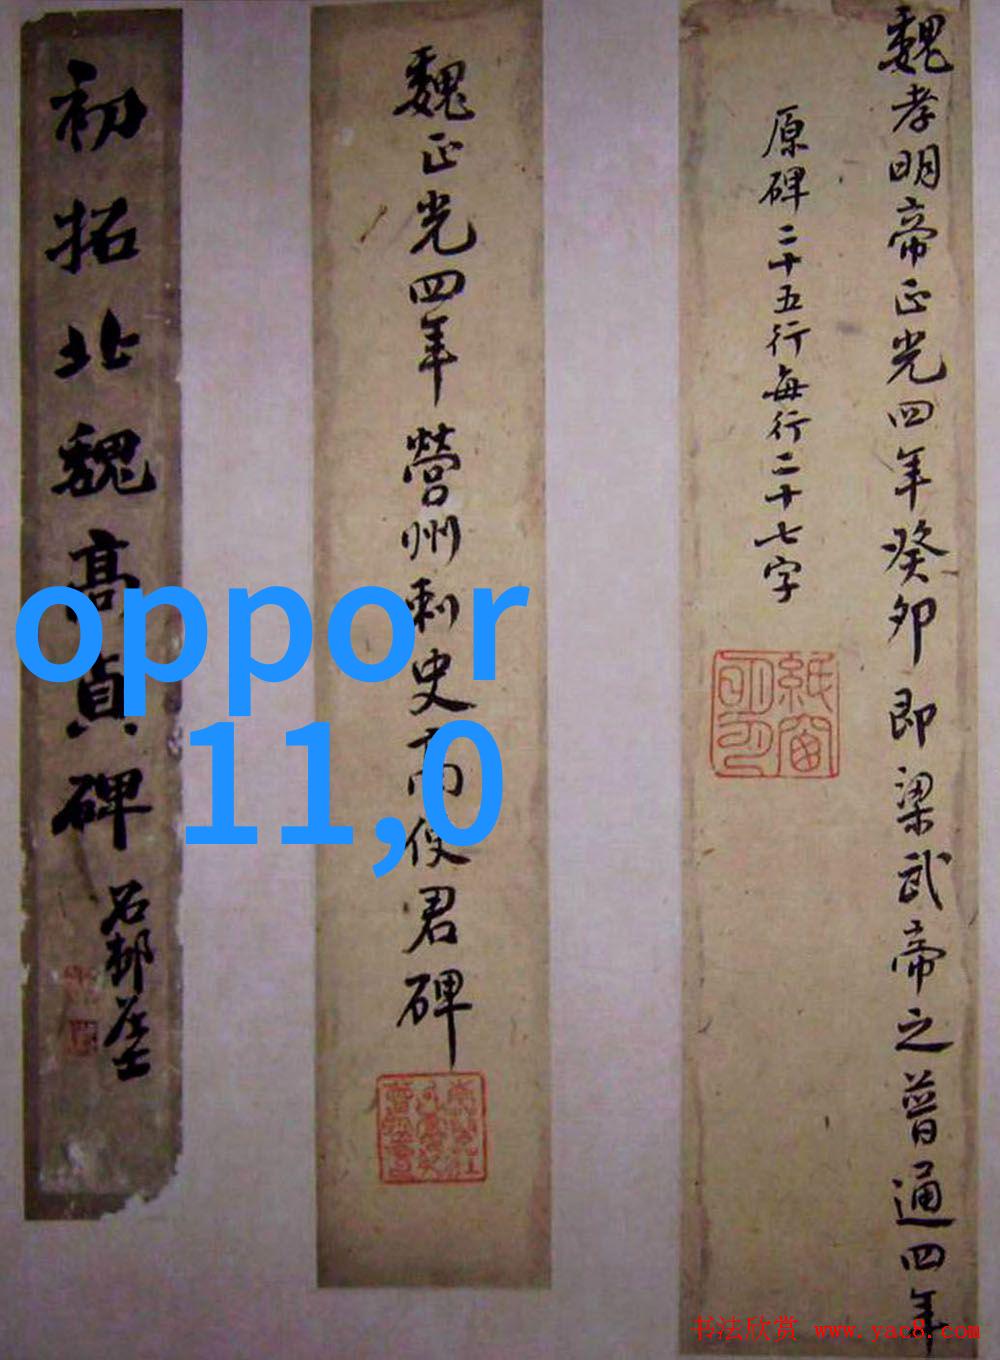 魏孝明帝正光四年癸卯即梁武帝之普通四年
原碑二十五行每行二十七字
魏正光四年營州刺史高使君碑
初拓北魏高貞碑
oppo r
11,0
书法欣赏 www.yac8.com